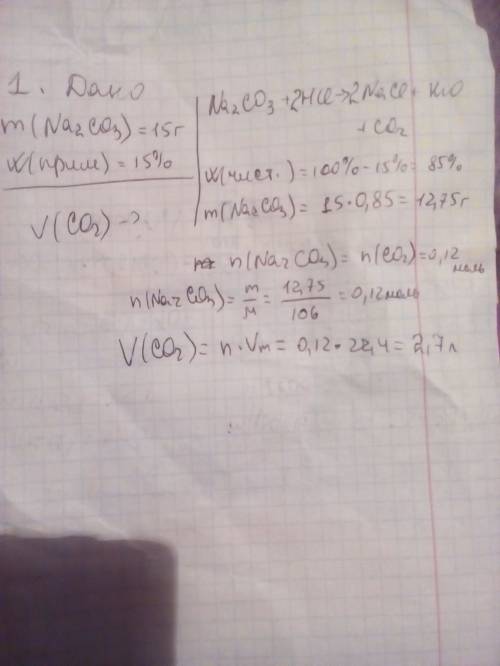 1. Дано
m(Na2CO3) = 15г
W(прим) = 15%
V(CO2) - ?
Na2CO3 + 2HCl → 2NaCl + H2O
+ CO2
W(чист.) = 100% - 15% = 85%
m(Na2CO3) = 15 · 0,85 = 12,75г
n(Na2CO3) = n(CO2) = 0,12 моль
n(Na2CO3) = m/M = 12,75/106 = 0,12 моль
V(CO2) = n · Vm = 0,12 · 22,4 = 2,7 л